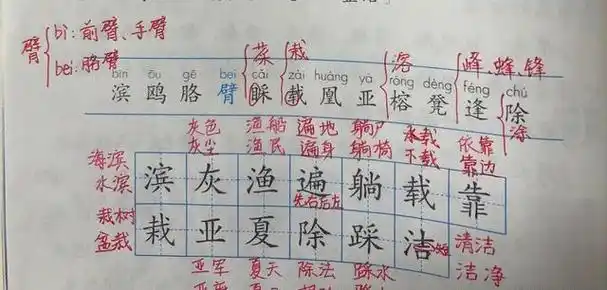 臂 bì:前臂、手臂
bei:胳臂
菜 栽 溶 峰、蜂、锋
bīn ōu gē bei cǎi zài huáng yà róng dèng féng chú
滨 鸥 胳 臂 睬 载 凰 亚 榕 凳 逢 除
灰色 渔船 遍地 躺户 水载 依靠
灰尘 渔民 遍身 躺椅 不载 靠边
海滨
水滨
滨 灰 渔 遍 躺 载 靠
先右后左
栽树
盆栽
栽 亚 夏 除 踩 洁
清洁
洁净
亚军 夏天 除法 踩水